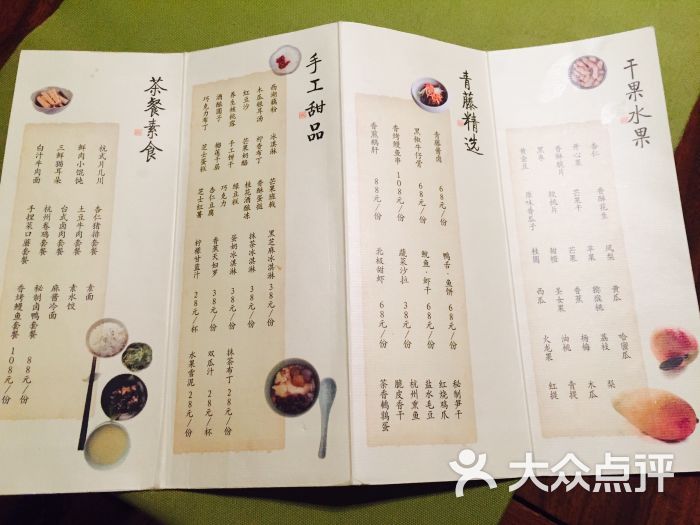 茶餐素食
杭式片儿川
鲜肉小馄饨
三鲜猫耳朵
白汁牛肉面
杏仁猪排套餐
土豆牛肉套餐
台式卤肉套餐
杭州卷鸡套餐
手捏菜口蘑套餐
素面
素水饺
麻酱冷面
秘制卤鸭套餐 88元/份
香烤鳗鱼套餐 108元/份
手工甜品
西湖藕粉
木瓜银耳汤
红豆沙
养生核桃露
酒酿圆子
巧克力布丁
冰淇淋
抑香布丁
芒果奶酪
手工饼干
榴莲千层
芝士蛋糕
芒果班戟
香酥蛋挞
桂花酒酿冻
绿豆糕
巧克力
杏仁豆腐
芝士红薯
黑芝麻冰淇淋 38元/份
抹茶冰淇淋 38元/份
蛋奶冰淇淋 38元/份
香蕉天妇罗 38元/份
柠檬甘蓝汁 28元/杯
抹茶布丁 28元/份
双瓜汁 28元/杯
水果雪泥 28元/份
青藤精选
青藤酱肉 68元/份
黑椒牛仔骨 68元/份
香烤鳗鱼串 108元/份
香煎鹅肝 88元/份
鸭舌·鱼饼 68元/份
鱿鱼·虾干 68元/份
蔬菜沙拉 38元/份
北极甜虾 68元/份
秘制笋干
红烧鸡爪
盐水毛豆
杭州熏鱼
脆皮香干
茶香鹌鹑蛋
干果水果
杏仁
开心果
香酥桃片
黑枣
黄金豆
香酥花生
芒果干
软桃片
原味香瓜子
凤梨
苹果
芒果
甜橙
桂圆
黄瓜
猕猴桃
香蕉
圣女果
西瓜
哈密瓜
荔枝
杨梅
油桃
火龙果
梨
木瓜
青提
红提
大众点评
dianping.com